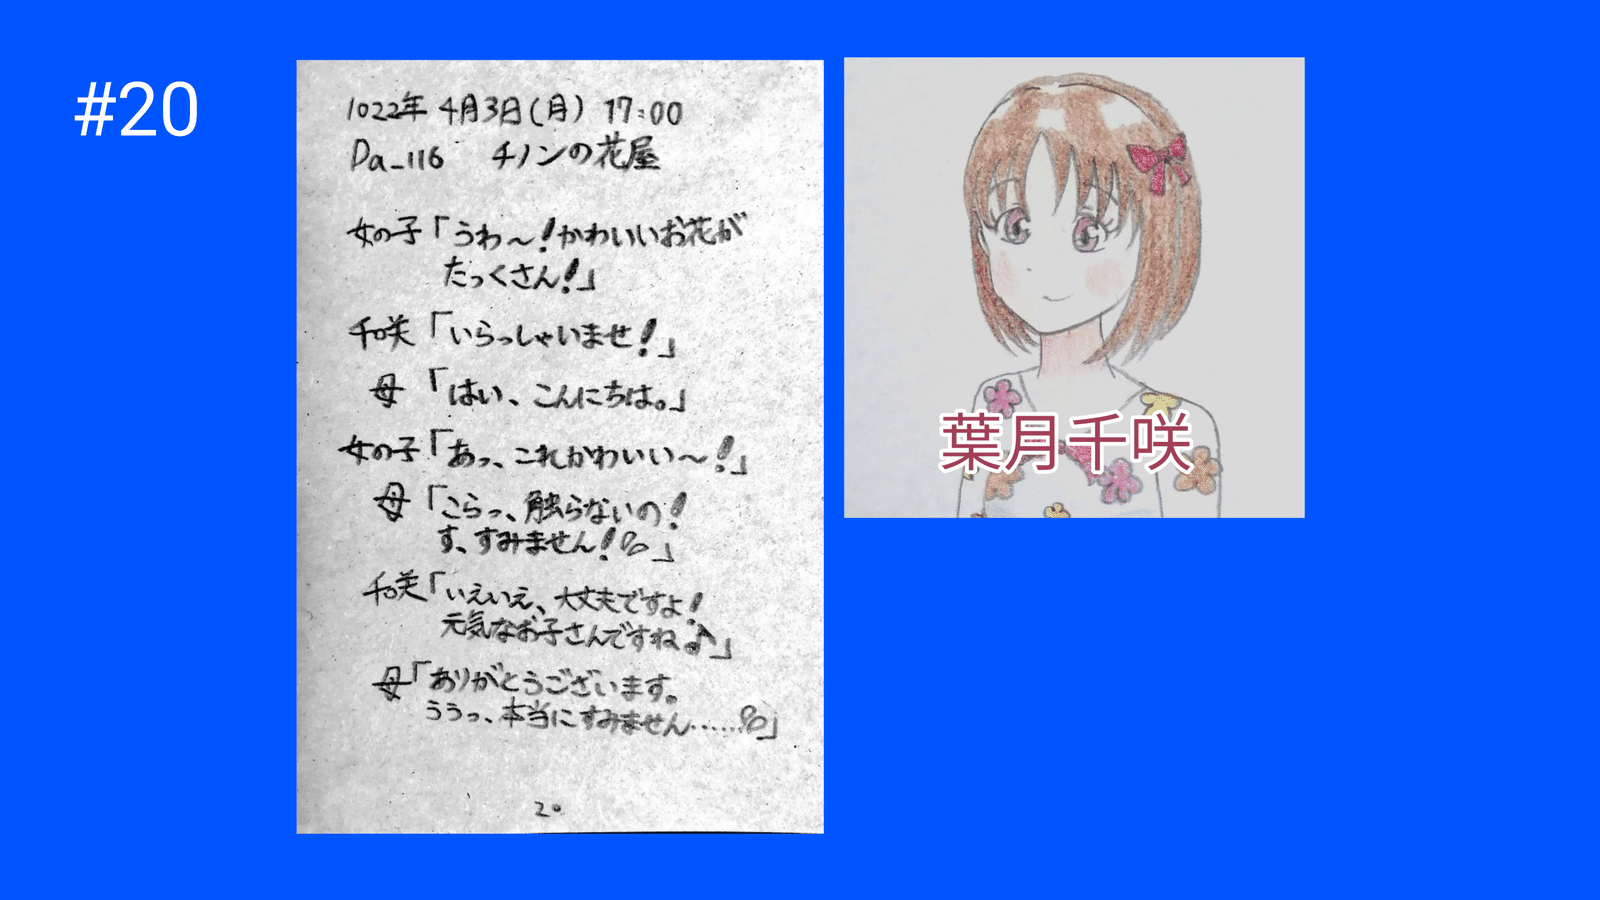 #20
1022年 4月3日(月) 17:00
Da_116 チノンの花屋
女の子「うわ〜!かわいいお花が
たっくさん!」
千咲「いらっしゃいませ!」
母「はい、こんにちは。」
女の子「あっ、これかわいい〜!」
母「こらっ、触らないの!
す、すみません!」
千咲「いえいえ、大丈夫ですよ!
元気なお子さんですね♪」
母「ありがとうございます。
ううっ、本当にすみません……」
20
葉月千咲